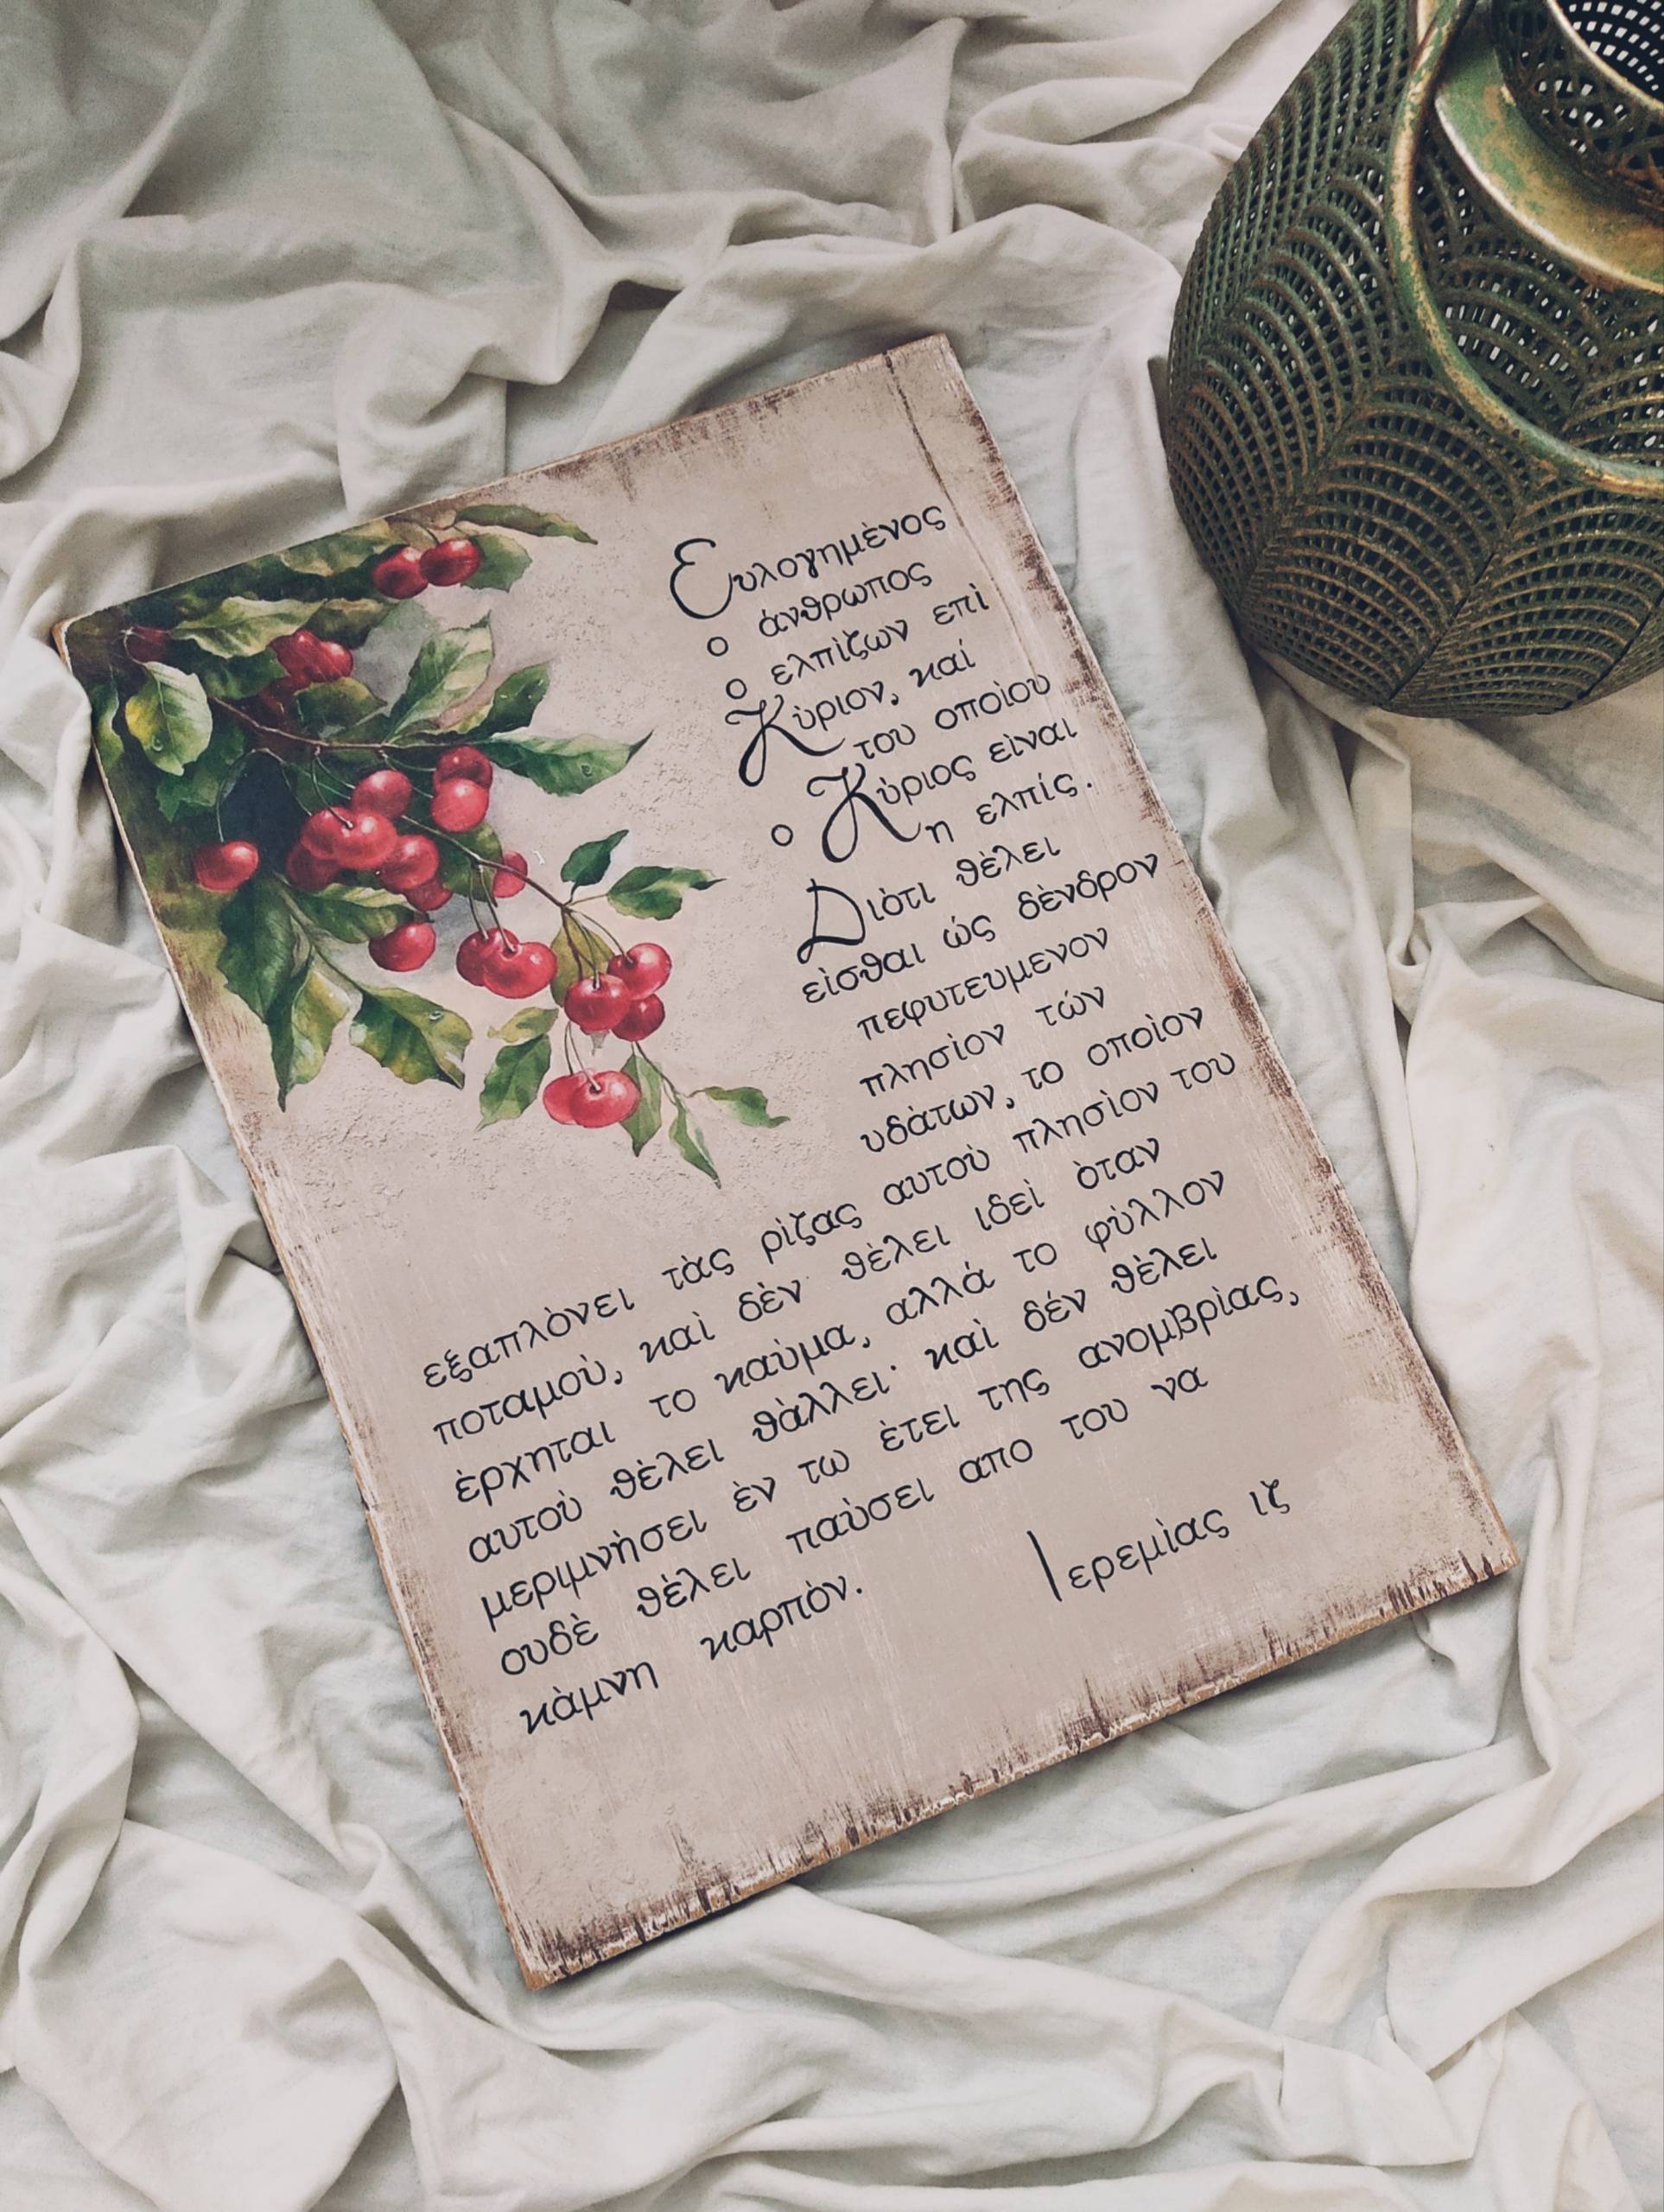 Ευλογημένος
ο άνθρωπος
ο ελπίζων επί
Κύριον, καί
του οποίου
ο Κύριος είναι
η ελπίς.
Διότι θέλει
είσθαι ώς δένδρον
πεφυτευμενον
πλησίον τών
υδάτων, το οποίον
εξαπλόνει τὰς ρίζας αυτού πλησίον του
ποταμού, καὶ δὲν θέλει ιδεί όταν
έρχηται το καύμα, αλλά το φύλλον
αυτού θέλει θάλλει· καὶ δέν θέλει
μεριμνήσει ὲν τω έτει της ανομβρίας,
ουδὲ θέλει παύσει απο του να
κάμνη καρπόν.
Ιερεμίας ιζ